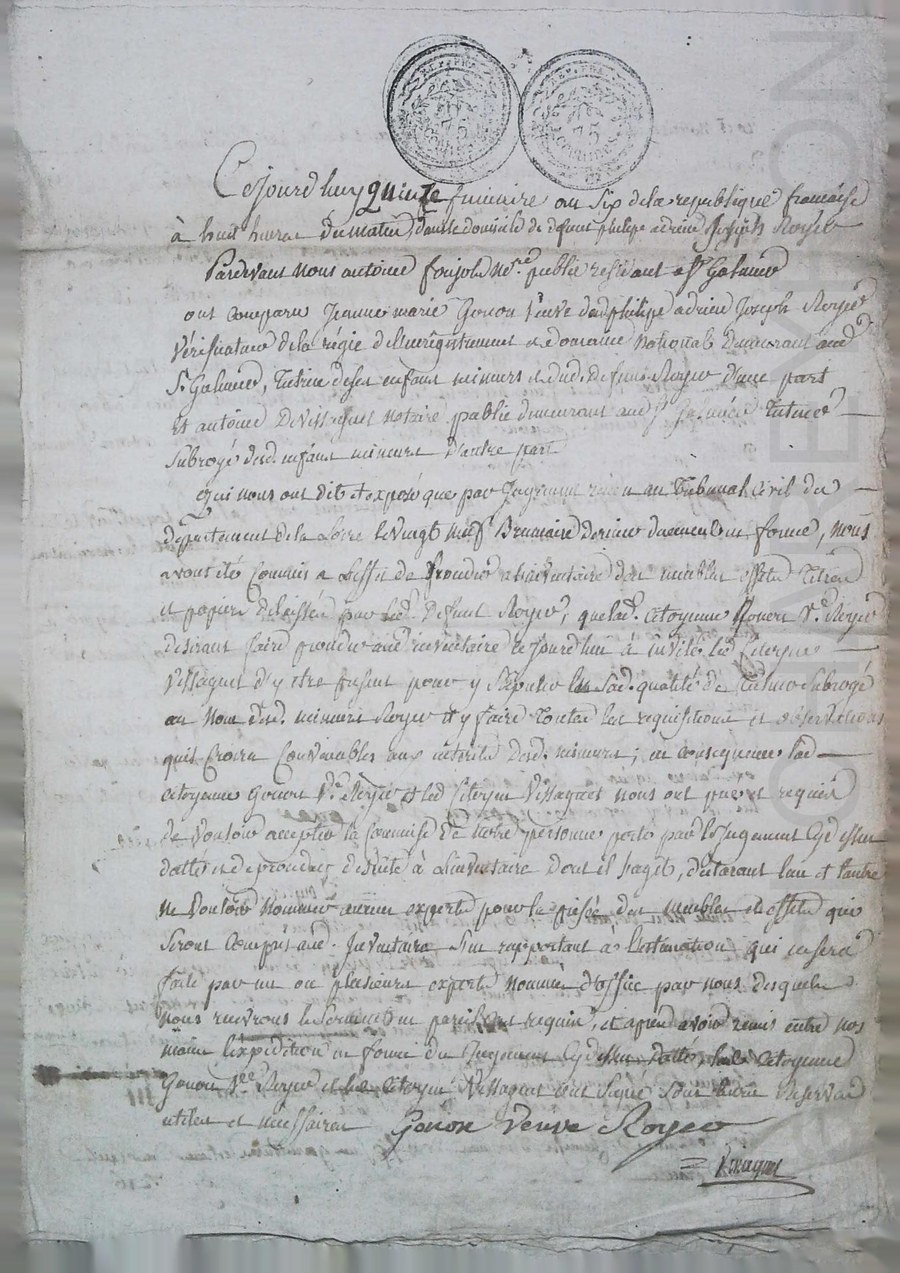 REP. FRA.
75
CENTIMES
REP. FRA.
75
CENTIMES
Cejourdhuy quinze frimaire an six de la republique francaise
à huit heures du matin, dans le domicile de defunt philipe adrien Joseph Royer
Pardevant nous antoine notre public residant a St Galmier
ont comparu Jeanne marie Gonon veuve dud philippe adrien Joseph Royer
Vérificateur de la régie de l'enregistrement et domaine National demeurant aud
St Galmier, Tutrice de ses enfans mineurs et dud. defunt Royer d'une part
Et antoine Devissaguet notaire public demeurant aud St Galmier Tuteur
Subrogé desd. enfans mineurs d'autre part
qui nous ont dit et exposé que par Jugement rendu au Tribunal Civil du
département de la Loire le vingt neuf Brumaire dernier duement en forme, nous
avons été Commis a l'effet de proceder a l'inventaire des meubles effets titres
et papiers delaissés par led. defunt Royer, que lad. Citoyenne Gonon Ve Royer
desirant faire proceder aud inventaire cejourdhui à invité led Citoyen
Vissaguet d'y etre present pour y Stipuler en Sad. qualité de Tuteur Subrogé
au Nom desd. mineurs Royer et y faire toutes les requisitions et observations
quil Croira Convenables aux interets desd. mineurs; en consequence lad
Citoyenne Gonon Ve Royer et led Citoyen Vissaguet nous ont requis
de Vouloir accepter la Commise de notre personne porté par le Jugement Cydessus
datté et de proceder de suite à l'inventaire dont il sagit, declarant l'un et l'autre
ne Vouloir Nommer aucun experts pour la prisée des meubles et effets qui
Seront Compris aud. Inventaire, S'en rapportant a l'estimation qui en sera
faite par un ou plusieurs experts nommés d'office par nous desquels
nous recevrons le Serment en pareil cas requis, et apres avoir remis entre nos
mains l'expedition en forme du Jugement Cydessus datté, lad Citoyenne
Gonon Vee Royer et led Citoyen Vissaguet ont Signé Sous leurs reserves
utiles et necessaires Gonon Veuve Royer
Vissaguet